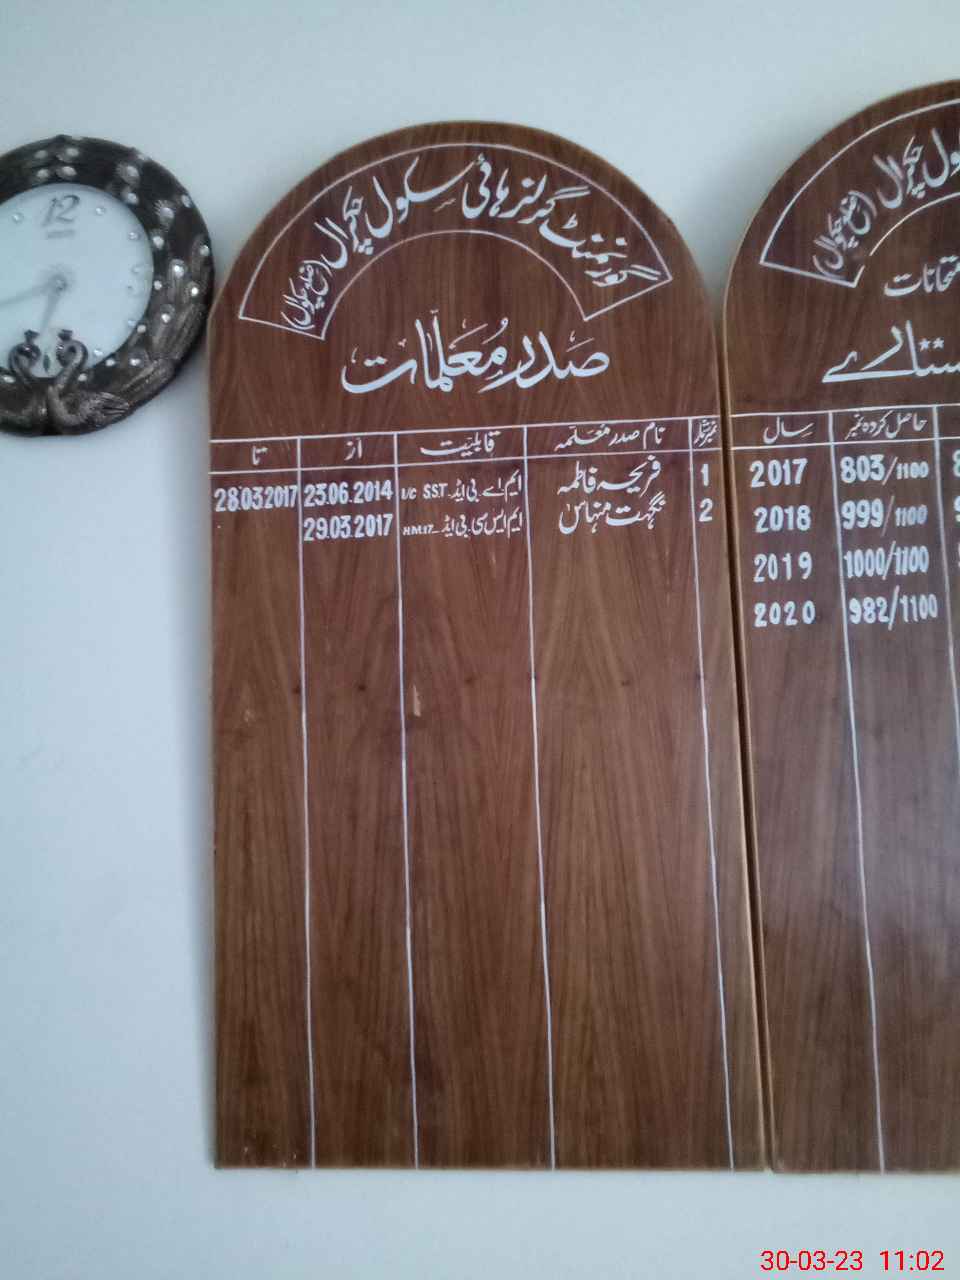 12
گورنمنٹ گرلز ہائی سکول چکرال (ضلع چکوال)
صدر معلمات
نمبر شمار نام صدر معلمہ قابلیت از تا
1 فریحہ فاطمہ ایم اے۔بی ایڈ۔ I/C SST 23.06.2014 28.03.2017
2 نگہت منہاس ایم ایس سی۔بی ایڈ H.M.17 29.03.2017
سکول چکرال (ضلع چکوال)
امتحانات
ستارے
حاصل کردہ نمبر سال
2017 803/1100
2018 999/1100
2019 1000/1100
2020 982/1100
30-03-23 11:02